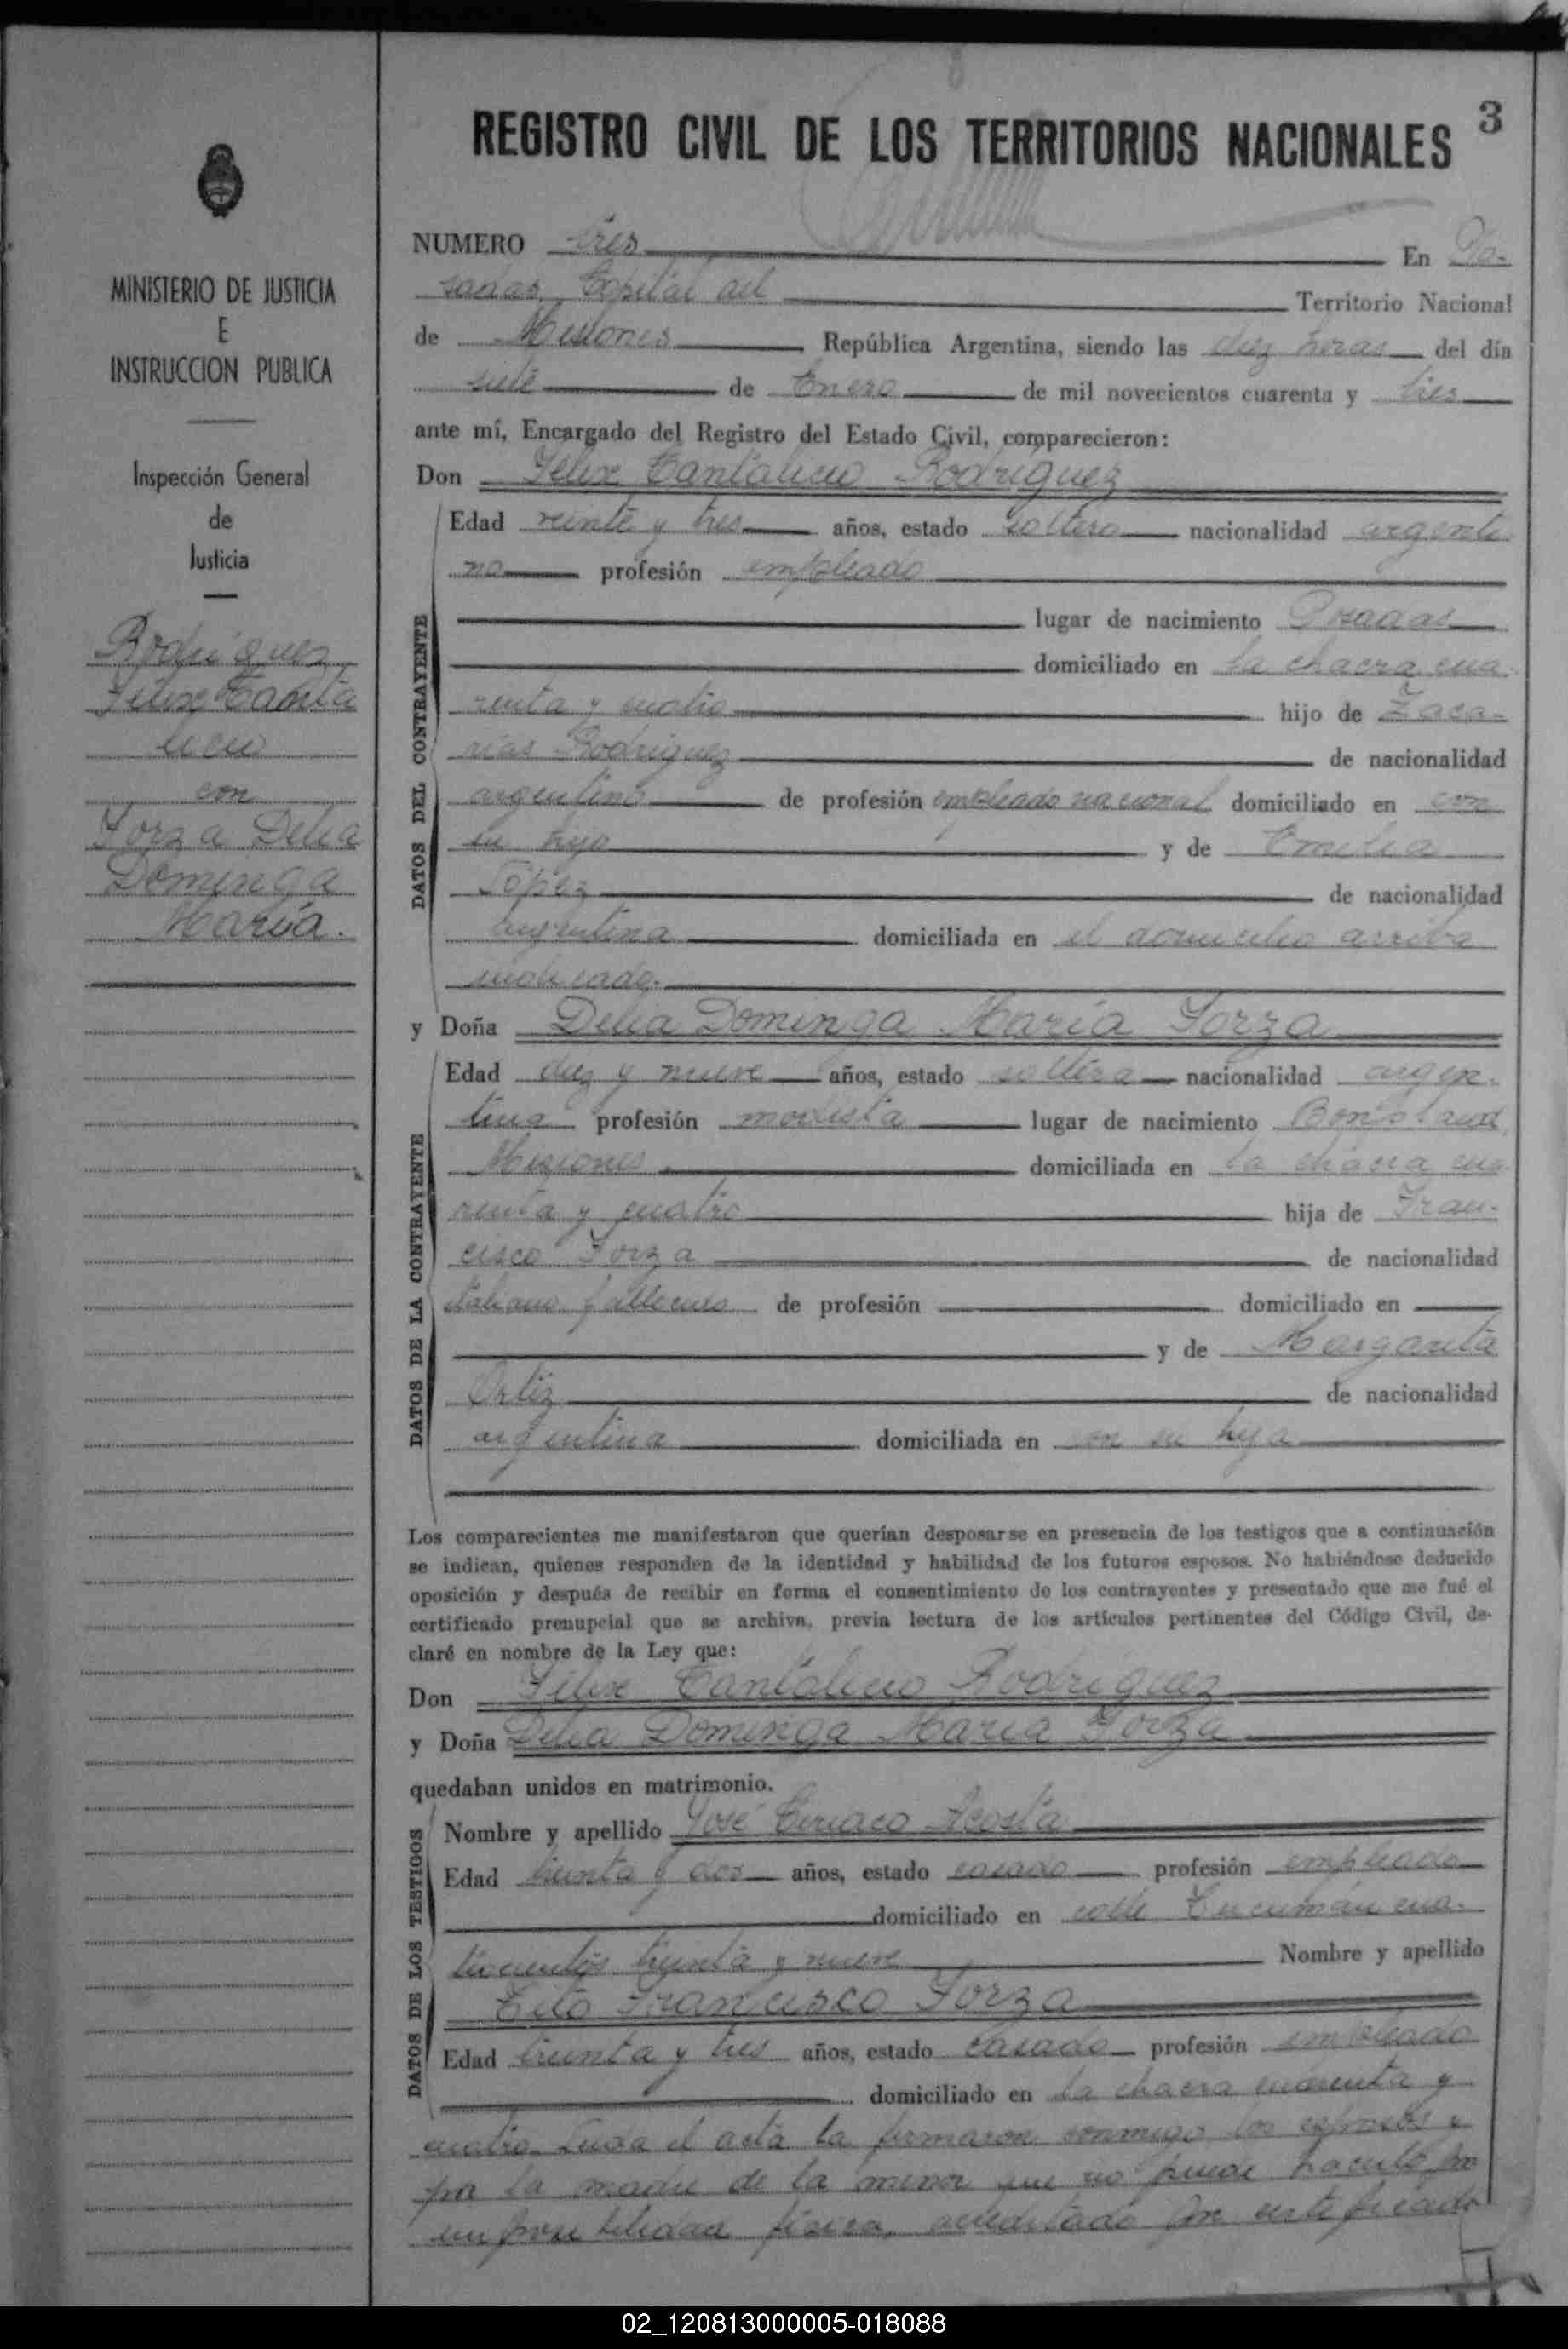 REGISTRO CIVIL DE LOS TERRITORIOS NACIONALES
3
MINISTERIO DE JUSTICIA
E
INSTRUCCION PUBLICA
Inspección General
de
Justicia
Rodríguez
Felix Tanta
licio
con
Forza Delia
Dominga
María.
NUMERO tres En Po-
sadas, Capital del Territorio Nacional
de Misiones República Argentina, siendo las diez horas del día
siete de Enero de mil novecientos cuarenta y tres
ante mí, Encargado del Registro del Estado Civil, comparecieron:
Don Felix Tantalicio Rodríguez
DATOS DEL CONTRAYENTE
Edad veinte y tres años, estado soltero nacionalidad argenti
no profesión empleado
lugar de nacimiento Posadas
domiciliado en la chacra cua-
renta y cuatro hijo de Zaca-
rías Rodríguez de nacionalidad
argentino de profesión empleado nacional domiciliado en con
su hijo y de Emilia
López de nacionalidad
argentina domiciliada en el domicilio arriba
indicado.
y Doña Delia Dominga María Forza
DATOS DE LA CONTRAYENTE
Edad diez y nueve años, estado soltera nacionalidad argen-
tina profesión modista lugar de nacimiento Bonpland
Misiones domiciliada en la chacra cua-
renta y cuatro hija de Fran-
cisco Forza de nacionalidad
italiano fallecido de profesión domiciliado en
y de Margarita
Ortiz de nacionalidad
argentina domiciliada en con su hija
Los comparecientes me manifestaron que querían desposarse en presencia de los testigos que a continuación
se indican, quienes responden de la identidad y habilidad de los futuros esposos. No habiéndose deducido
oposición y después de recibir en forma el consentimiento de los contrayentes y presentado que me fué el
certificado prenupcial que se archiva, previa lectura de los artículos pertinentes del Código Civil, de-
claré en nombre de la Ley que:
Don Felix Tantalicio Rodríguez
y Doña Delia Dominga María Forza
quedaban unidos en matrimonio.
DATOS DE LOS TESTIGOS
Nombre y apellido José Ciriaco Acosta
Edad treinta y dos años, estado casado profesión empleado
domiciliado en calle Tucumán cua-
trocientos treinta y nueve Nombre y apellido
Tito Francisco Forza
Edad treinta y tres años, estado casado profesión empleado
domiciliado en la chacra cuarenta y
cuatro. Leída el acta la firmaron conmigo los esposos y
por la madre de la menor que no puede hacerlo por
imposibilidad física, acreditado por certificado
02_120813000005-018088